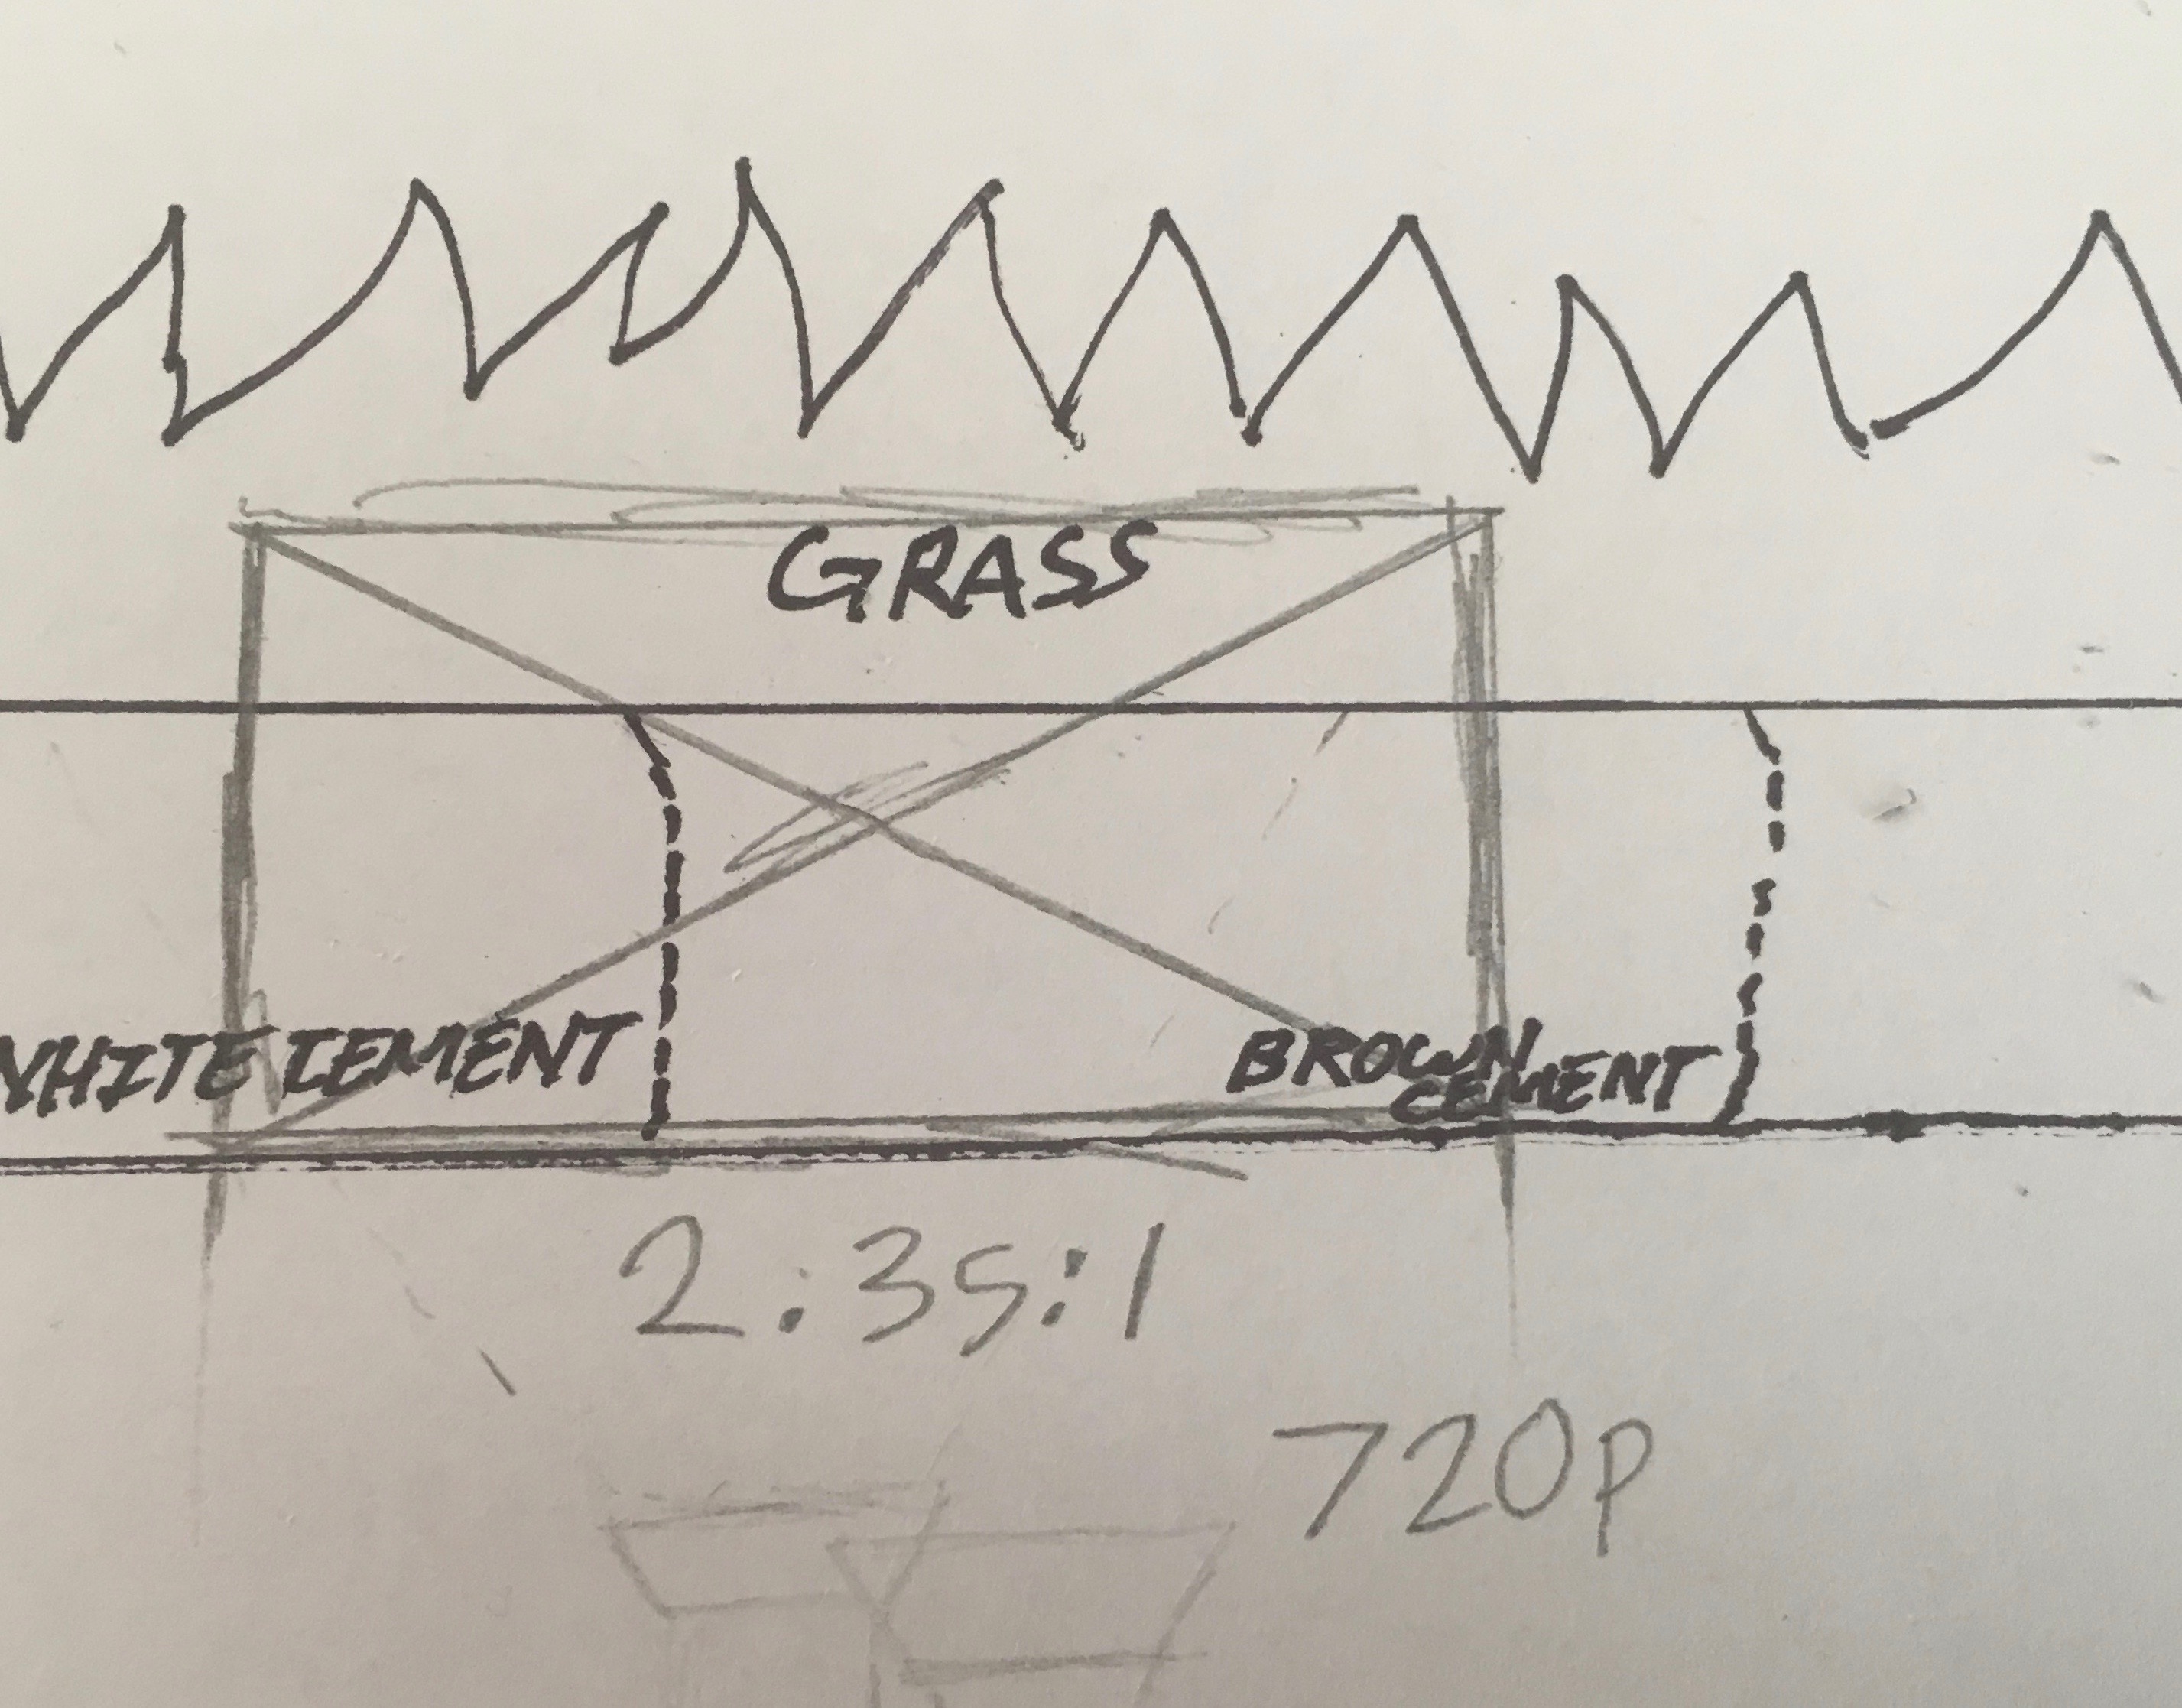 GRASS
WHITE CEMENT
BROWN
CEMENT
2:35:1
720p